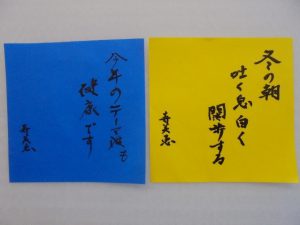 冬の朝
吐く息白く
闊歩する
寿美恵
今年のテーマ も
健康です
寿美恵